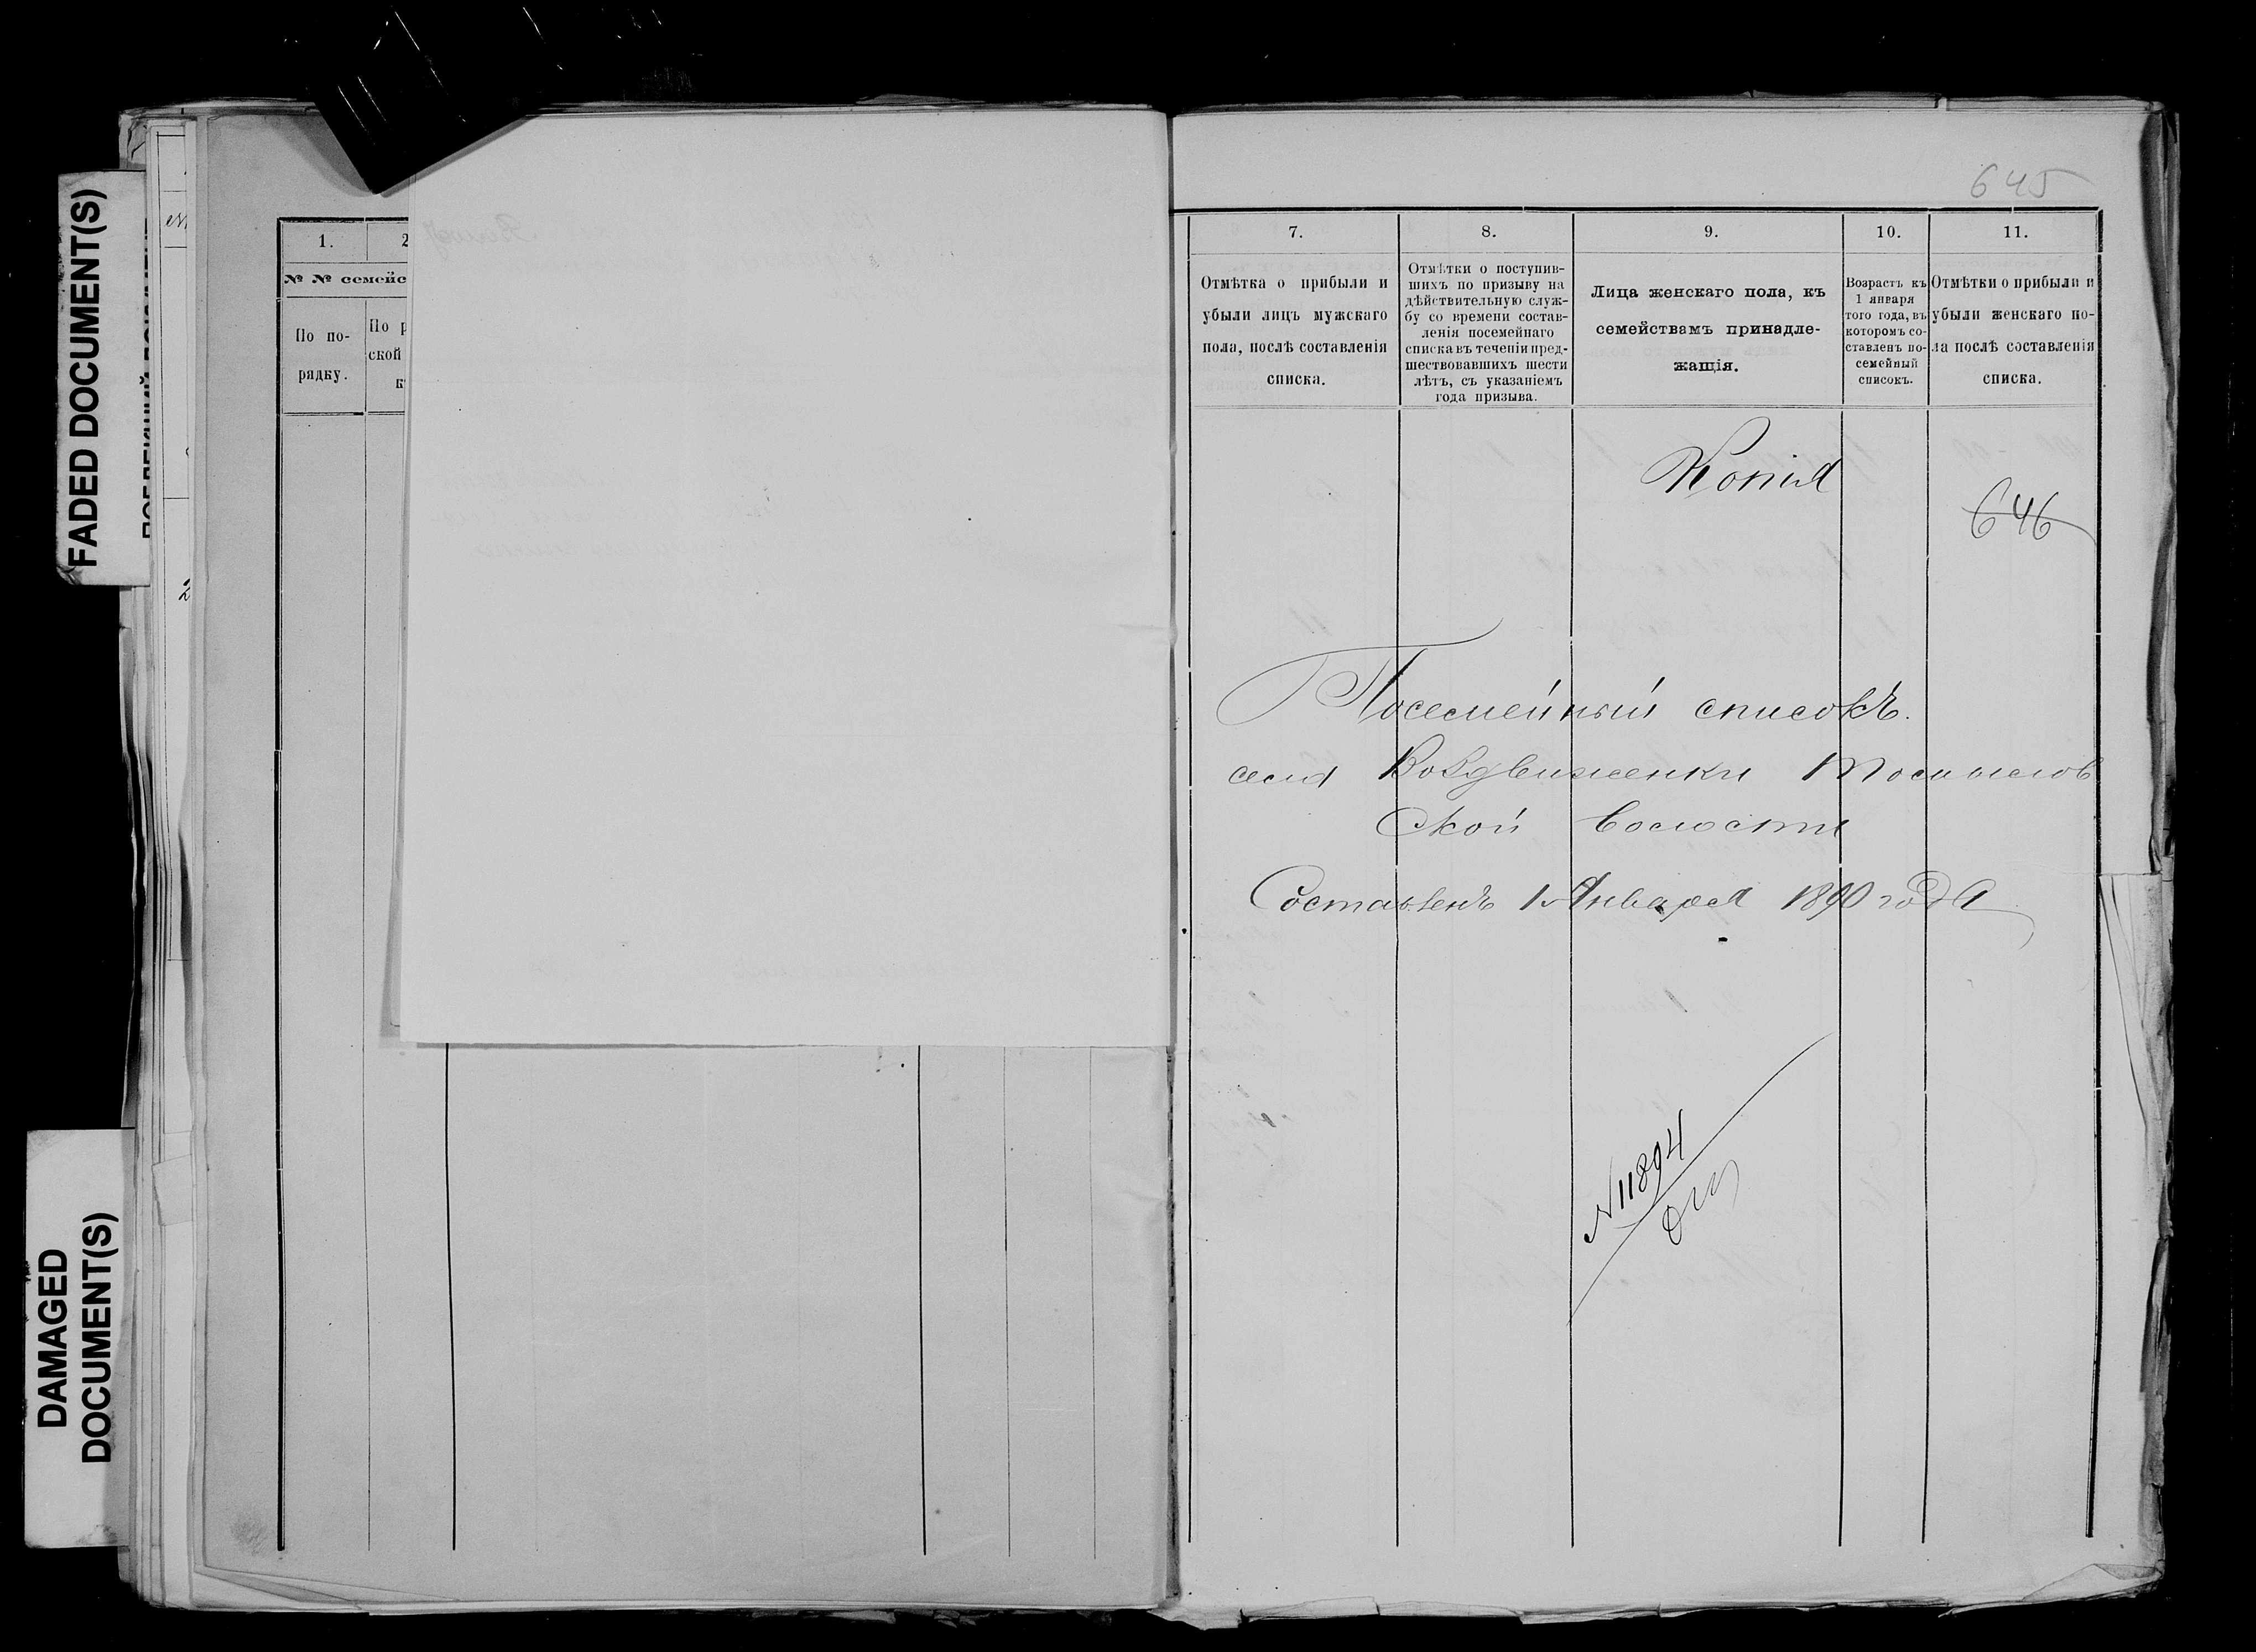 FADED DOCUMENT(S)
DAMAGED
DOCUMENT(S)
1.
2
№ № семейс
По по-
рядку.
По р
ской
к
645
7.
8.
9.
10.
11.
Отмѣтка о прибыли и
убыли лицъ мужскаго
пола, послѣ составленія
списка.
Отмѣтки о поступив-
шихъ по призыву на
дѣйствительную служ-
бу со времени состав-
ленія посемейнаго
списка въ теченіи пред-
шествовавшихъ шести
лѣтъ, съ указаніемъ
года призыва.
Лица женскаго пола, къ
семействамъ принадле-
жащія.
Возрастъ къ
1 января
того года, въ
которомъ со-
ставленъ по-
семейный
списокъ.
Отмѣтки о прибыли и
убыли женскаго по-
ла послѣ составленія
списка.
Копія
646
Посемейный списокъ.
села Воздвиженки
ской волости
Составленъ 1 Января 1890 года
№11894